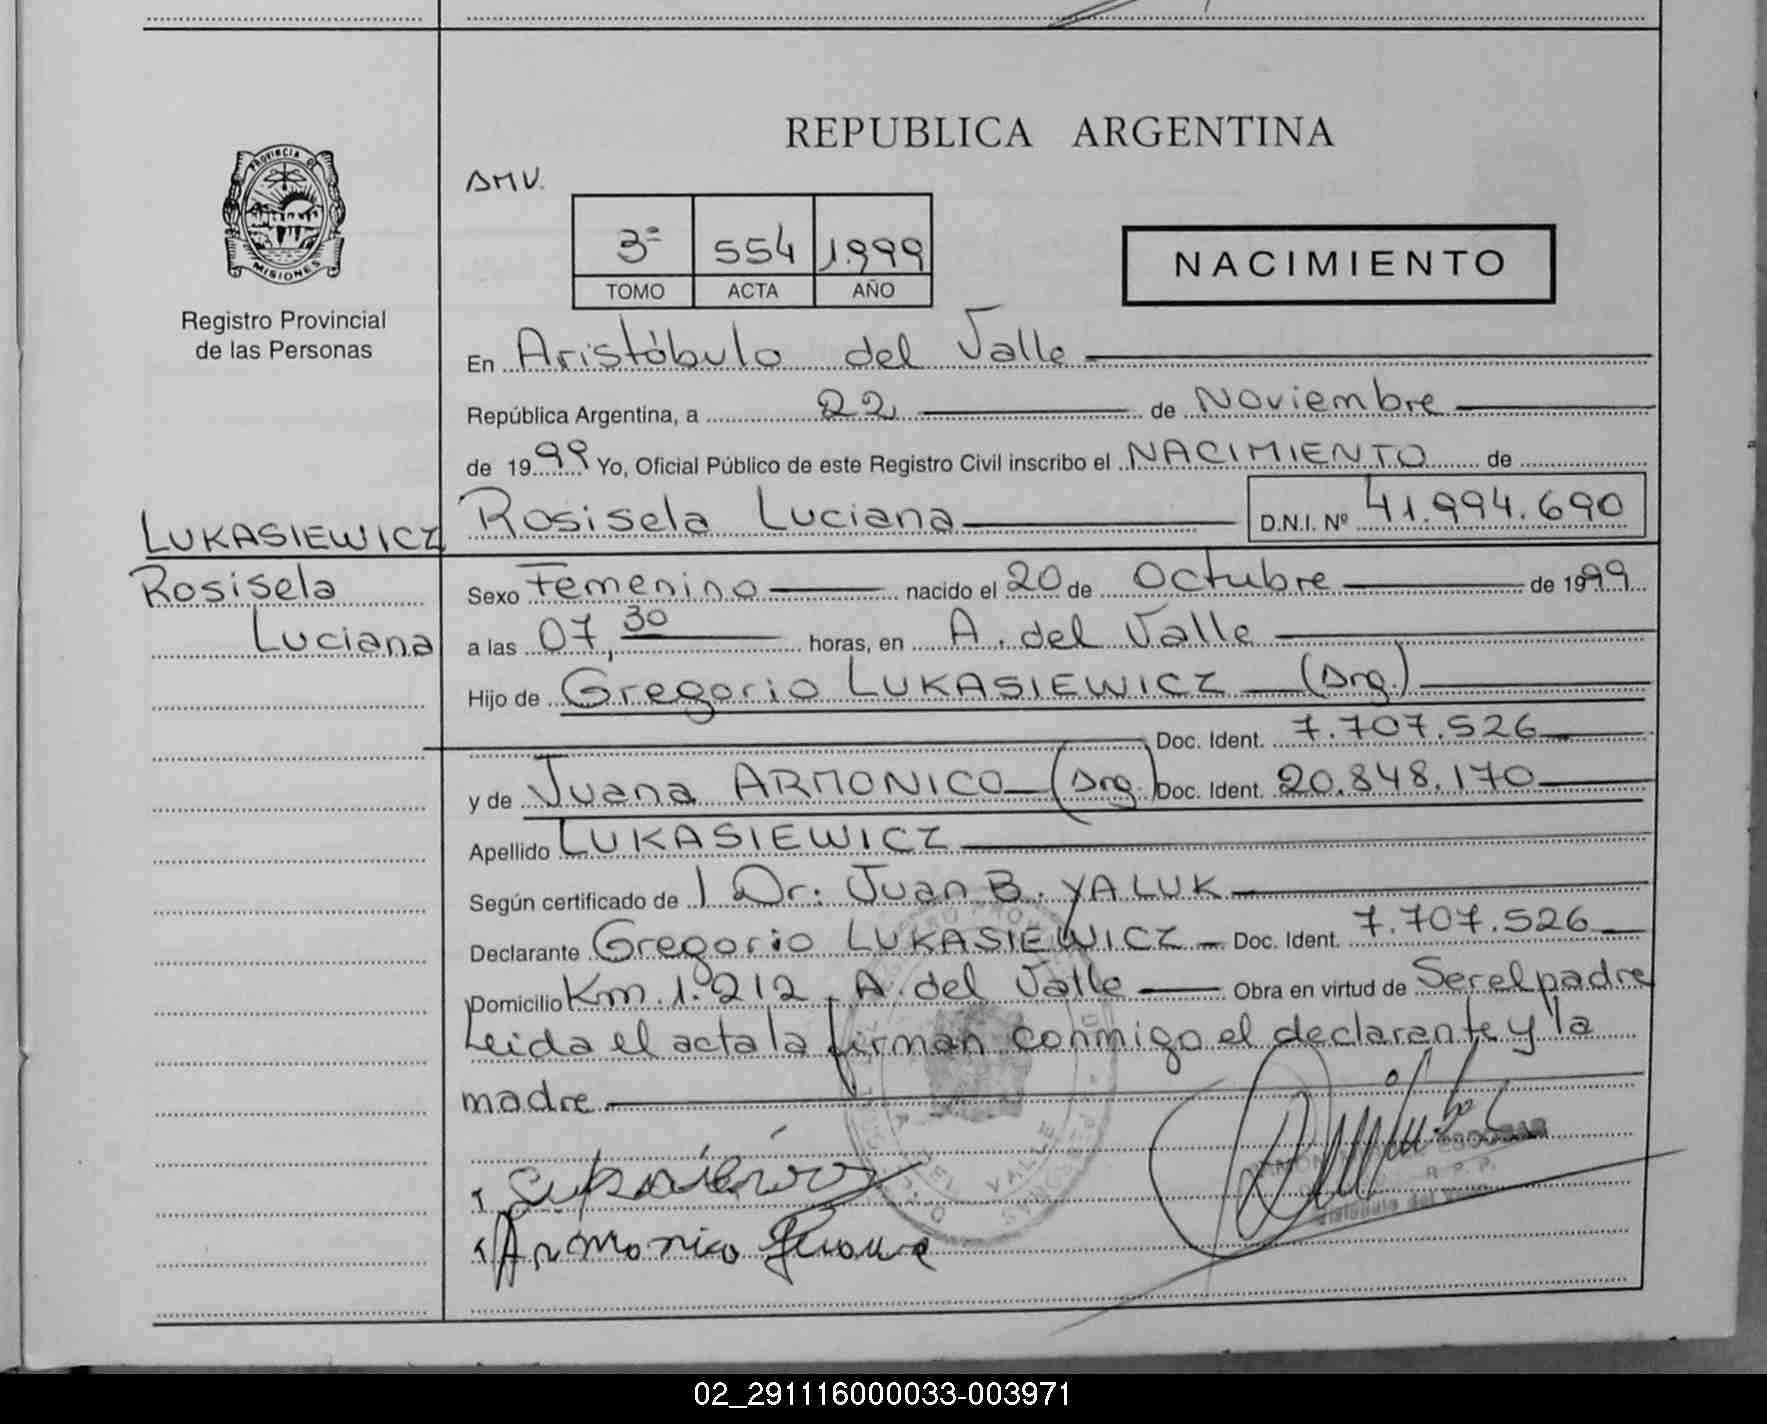 REPUBLICA ARGENTINA
PROVINCIA DE
MISIONES
Registro Provincial
de las Personas
3ª 554 1.999
TOMO ACTA AÑO
NACIMIENTO
En Aristóbulo del Valle
República Argentina, a 22 de Noviembre
de 1999 Yo, Oficial Público de este Registro Civil inscribo el NACIMIENTO de
Rosisela Luciana D.N.I. Nº 41.994.690
LUKASIEWICZ
Rosisela
Luciana
Sexo Femenino nacido el 20 de Octubre de 1999
a las 07,30 horas, en A. del Valle
Hijo de Gregorio LUKASIEWICZ (Arg.)
Doc. Ident. 7.707.526
y de Juana ARMONICO (Arg.) Doc. Ident. 20.848.170
Apellido LUKASIEWICZ
Según certificado de l Dr. Juan B. YALUK
Declarante Gregorio LUKASIEWICZ Doc. Ident. 7.707.526
Domicilio Km. 1.212, A. del Valle Obra en virtud de Ser el padre
Leida el acta la firman conmigo el declarante y la
madre
Armonico Juana
ESCOBAR
R.P.P.
02_291116000033-003971